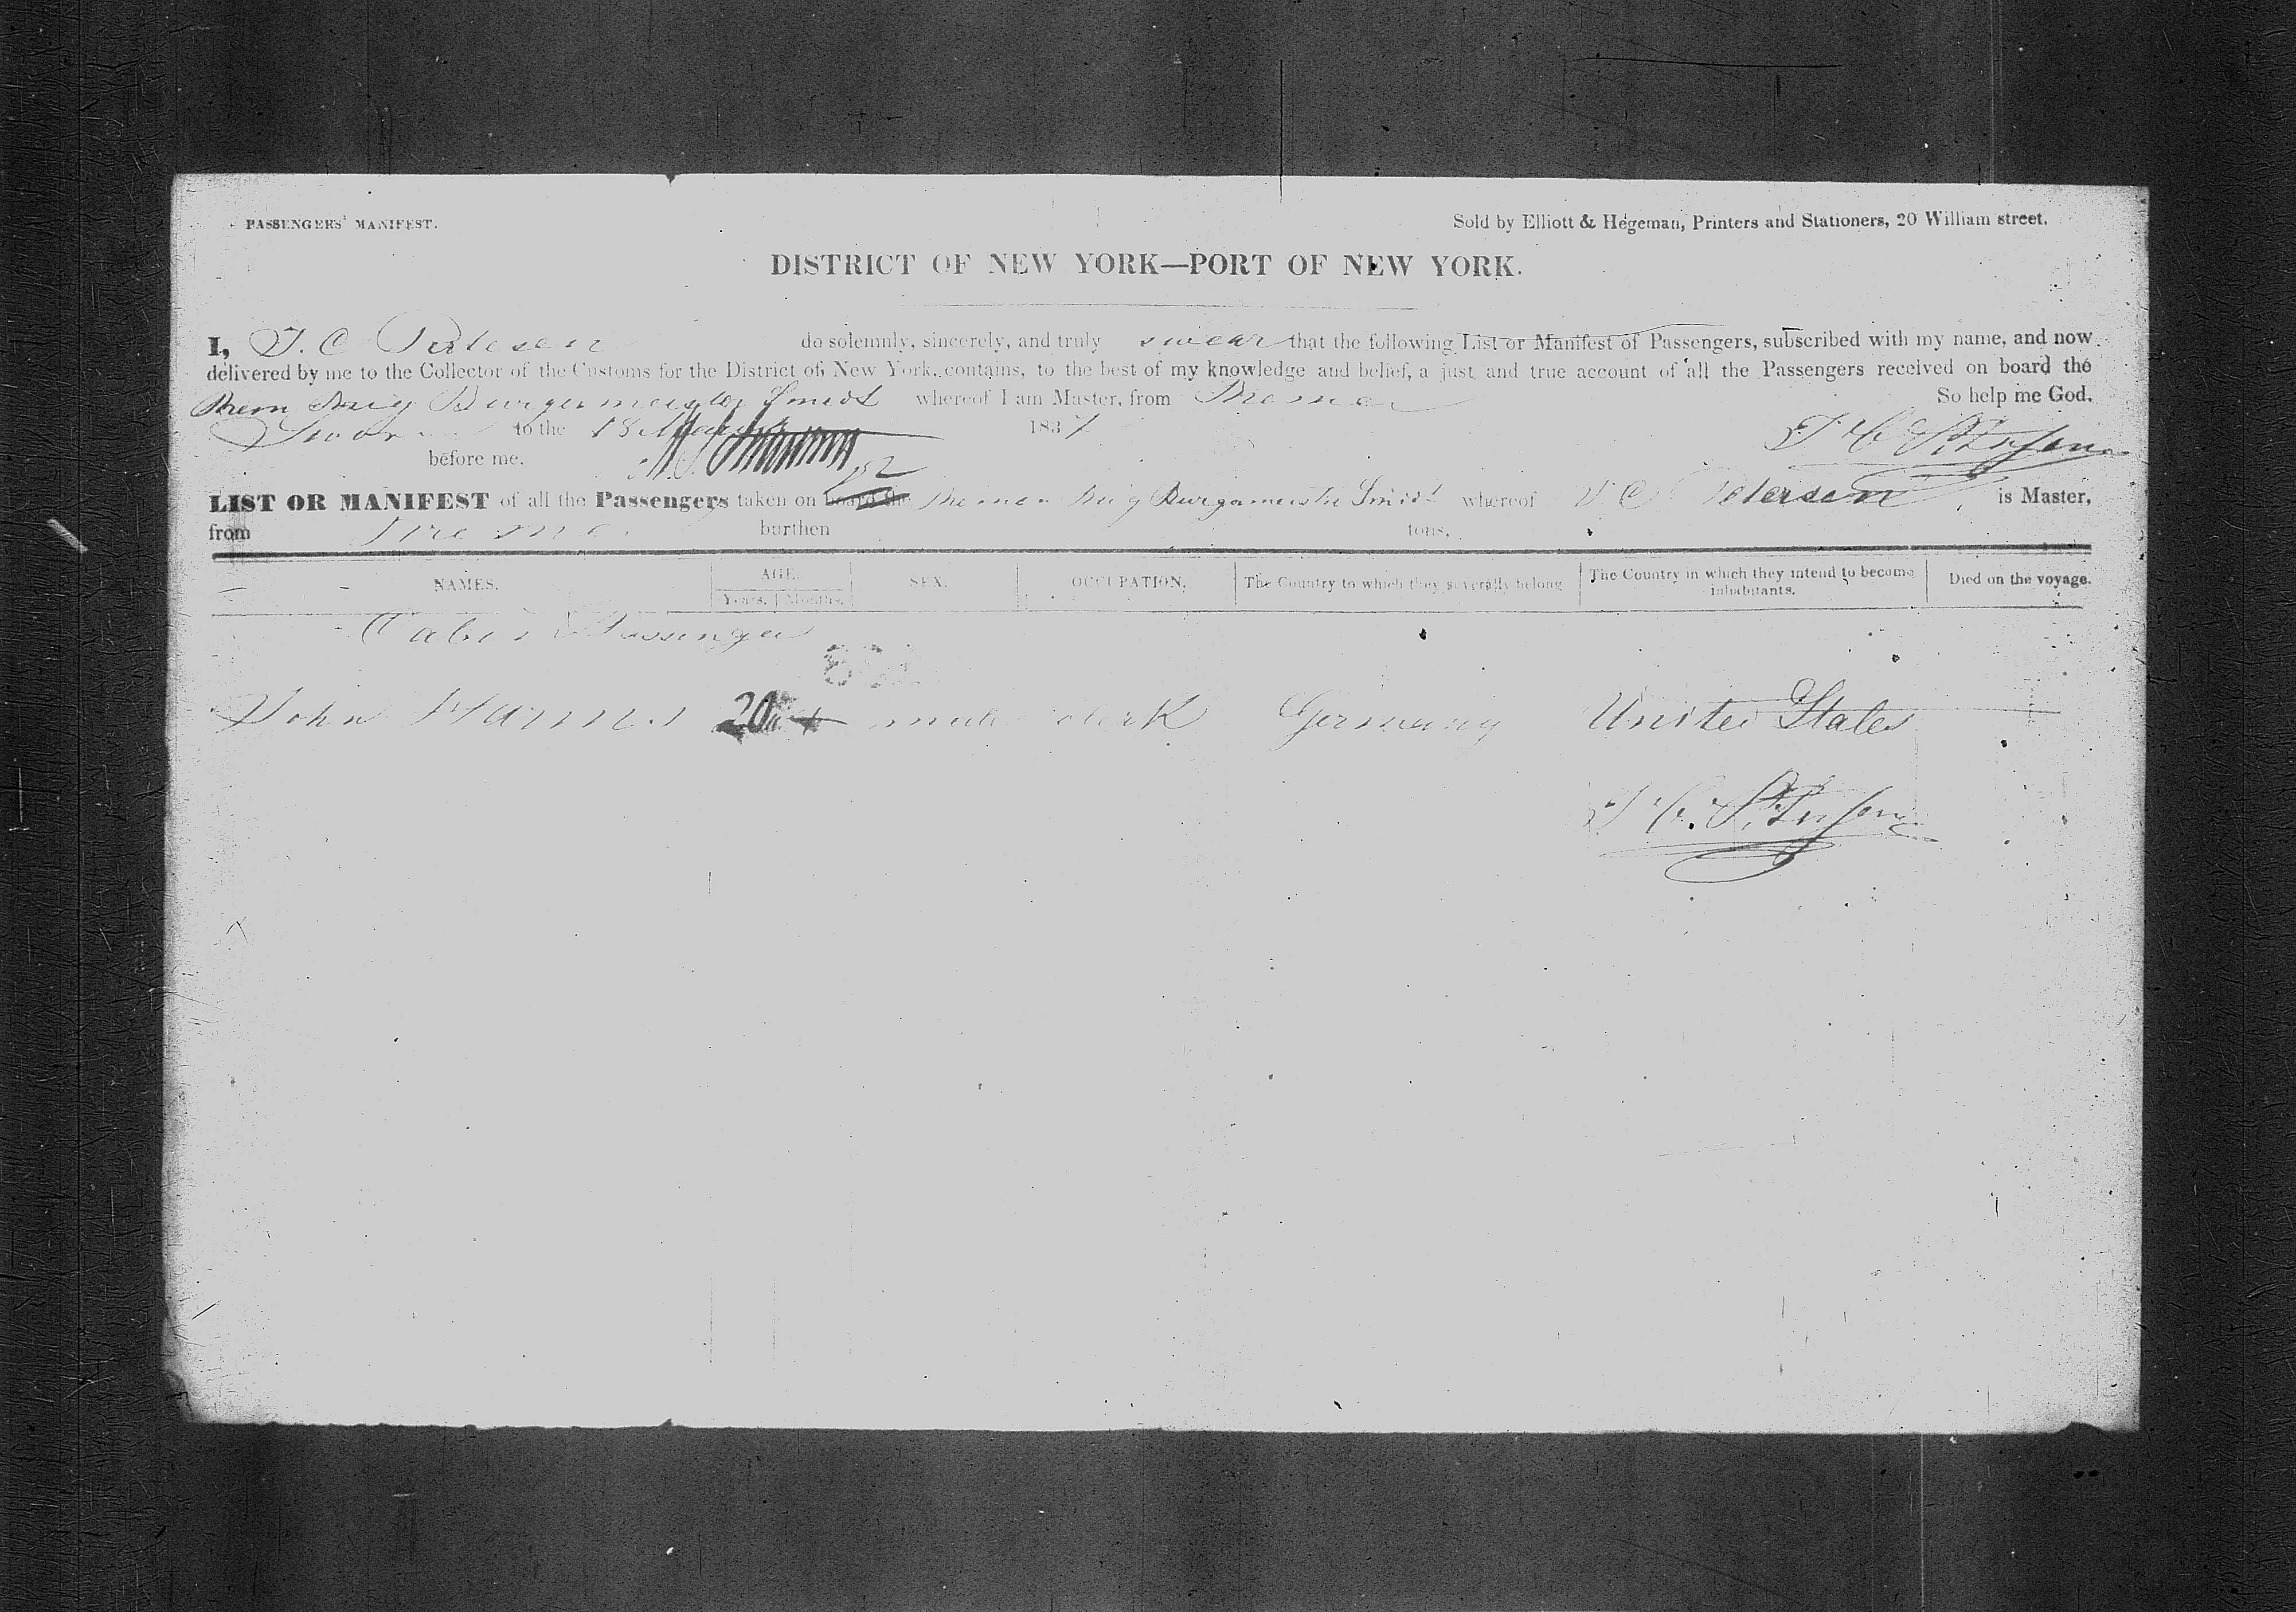 PASSENGERS' MANIFEST. Sold by Elliott & Hegeman, Printers and Stationers, 20 William street.
DISTRICT OF NEW YORK—PORT OF NEW YORK.
I, J. C Petersen do solemnly, sincerely, and truly swear that the following List or Manifest of Passengers, subscribed with my name, and now
delivered by me to the Collector of the Customs for the District of New York, contains, to the best of my knowledge and belief, a just and true account of all the Passengers received on board the
Brem Brig Burgermeister Smidt whereof I am Master, from Bremen So help me God.
Sworn to the 18 March 1837
before me.
LIST OR MANIFEST of all the Passengers taken on board the Bremen Brig Burgameister Smidt whereof J C Petersen is Master,
from Bremen burthen tons,
NAMES. AGE. Years. Months. SEX. OCCUPATION. The Country to which they severally belong The Country in which they intend to become inhabitants. Died on the voyage.
Cabin Passenger
John Harms 20 male clerk Germany United States
J. C. Petersen